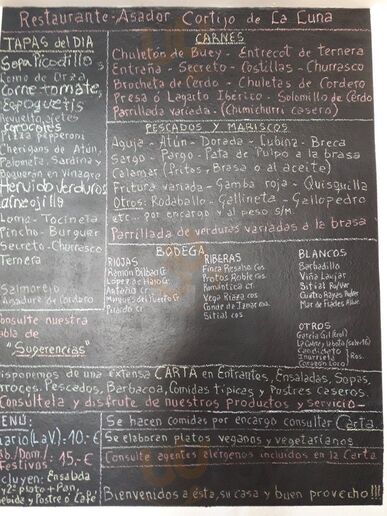 Restaurante-Asador Cortijo de La Luna
TAPAS del DIA
Sopa Picadillo
Lomo de Orza
Carne tomate
Espoguetis
Pizza pepperoni
Cherigans de Atún,
Paloneta, Sardina y
Boqueron en Vinagre
Hervido verduras
Lomo - Tocineta
Pincho - Burguer
Secreto - Churrasco
Ternera
Salmorejo
Asadura de Cordero
Consulte nuestra
tabla de
"Sugerencias"
CARNES
Chuletón de Buey - Entrecot de ternera
Entraña - Secreto - Costillas - Churrasco
Brocheta de Cerdo - Chuletas de Cordero
Presa ó Lagarto Ibérico - Solomillo de Cerdo
Parrillada variada - (Chimichurri casero)
PESCADOS Y MARISCOS
Aguja - Atún - Dorada - Lubina - Breca
Sargo - Pargo - Pata de Pulpo a la brasa
Calamar (Frito, Brasa ó al aceite)
Fritura variada - Gamba roja - Quisquilla
Otros: Rodaballo - Gallineta - Gallopedro
etc... por encargo y al peso S/M.
Parrillada de verduras variadas a la brasa
BODEGA
RIOJAS
Ramón Bilbao Cr
Lopez de Haro Cr
Antaño Cr
Marques del Puerto Cr
RIBERAS
Finca Resalso Cos
Protos Roble Cos
Romantica Cr
Vega Riaza Cos
Conde de
Sitial Cos
BLANCOS
Barbadillo
Viña Laujar
Sitial
Cuatro Rayas
Mar de Frades
OTROS
Candidato
Inurrieta
disponemos de una extensa CARTA en Entrantes, Ensaladas, Sopas,
Arroces, Pescados, Barbacoa, Comidas típicas y Postres Caseros.
Consúltela y disfrute de nuestros productos y servicio
MENÚ:
Diario (L a V.) = 10.- €
Sab./Dom./
Festivos 15.- €
Incluyen: Ensalada
1º y 2º plato + Pan,
Bebida y Postre ó Café
Se hacen comidas por encargo consultar Carta
Se elaboran platos veganos y vegetarianos
Consulte agentes alérgenos incluidos en la Carta
Bienvenidos a ésta, su casa y buen provecho!!!